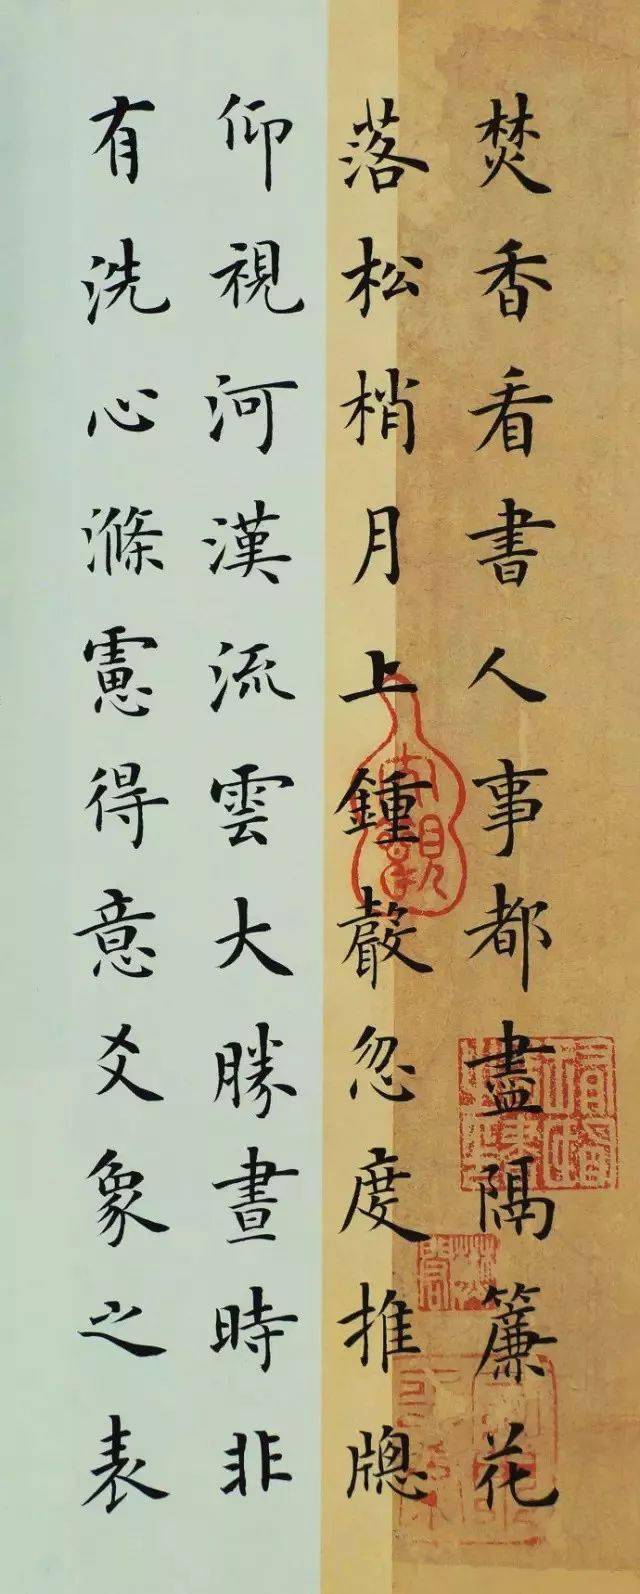 焚香看書人事都盡隔簾花
落松梢月上鍾聲忽度推牎
仰視河漢流雲大勝晝時非
有洗心滌慮得意爻象之表